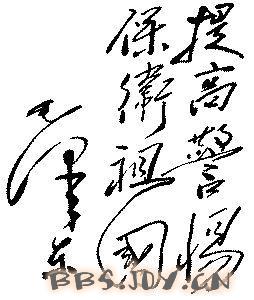 提高警惕
保衛祖國
毛澤东
BBS.JOY.CN